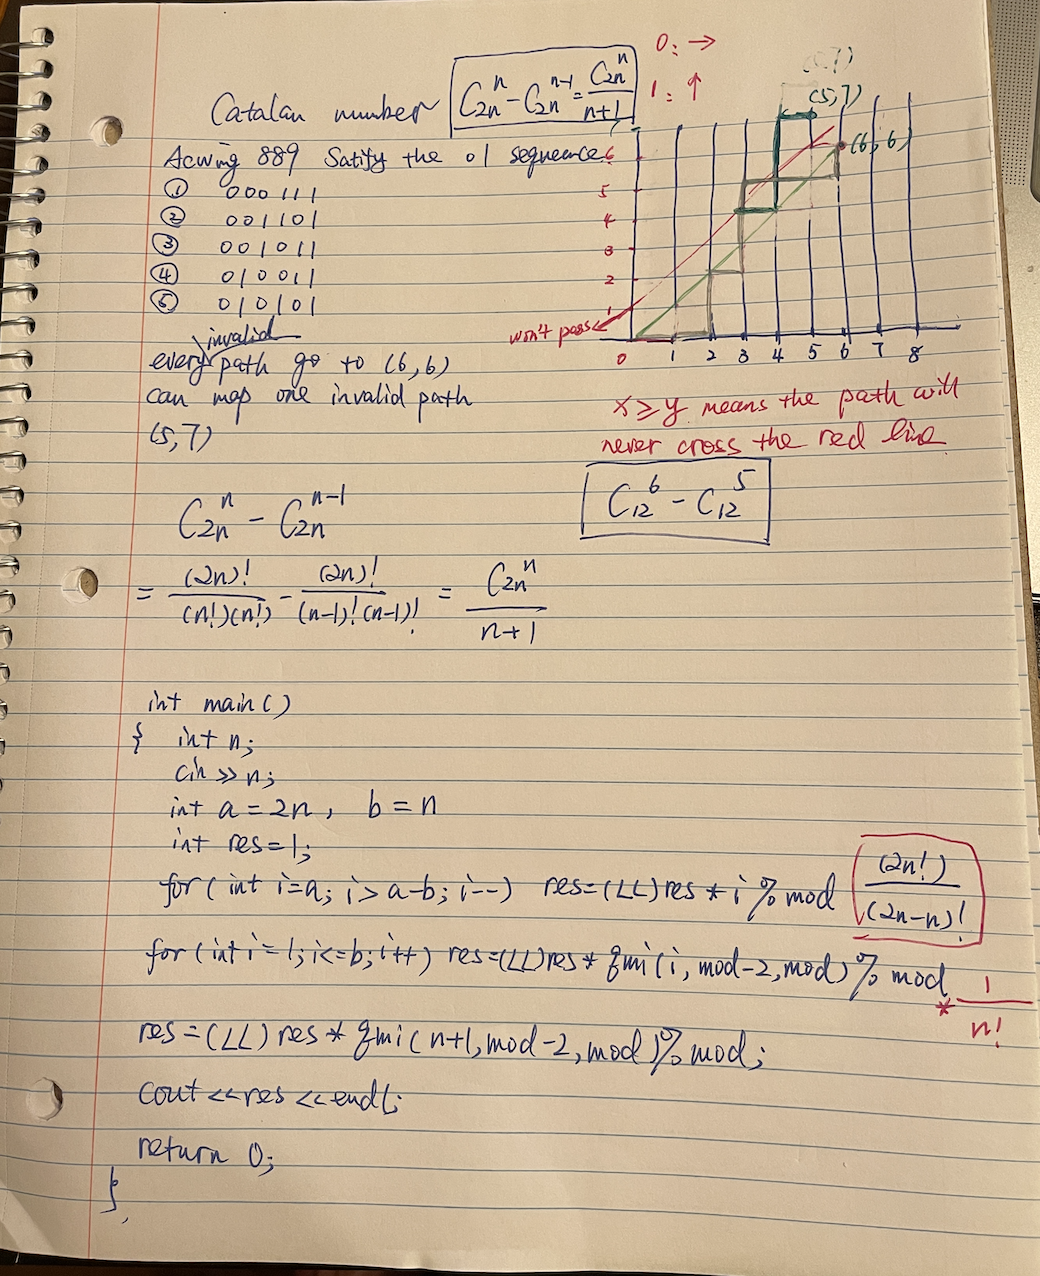 0: →
1: ↑
Catalan number C_{2n}^{n} - C_{2n}^{n-1} = C_{2n}^{n} / n+1
Acwing 889 Satify the 01 sequence
① 000111
② 001101
③ 001011
④ 010011
⑤ 010101
invalid
every path go to (6,6)
can map one invalid path
(5,7)
(5,7)
(6,6)
6
5
4
3
2
1
won't pass
0 1 2 3 4 5 6 7 8
x ≥ y means the path will
never cross the red line
C_{12}^{6} - C_{12}^{5}
C_{2n}^{n} - C_{2n}^{n-1}
= (2n)! / (n!)(n!) - (2n)! / (n-1)!(n-1)! = C_{2n}^{n} / n+1
int main()
{ int n;
cin >> n;
int a = 2n, b = n
int res = 1;
for (int i=a; i > a-b; i--) res = (LL) res * i % mod (2n!) / (2n-n)!
for (int i=1; i<=b; i++) res=(LL)res * qmi(i, mod-2, mod) % mod * 1 / n!
res = (LL) res * qmi(n+1, mod-2, mod) % mod;
cout << res << endl;
return 0;
}